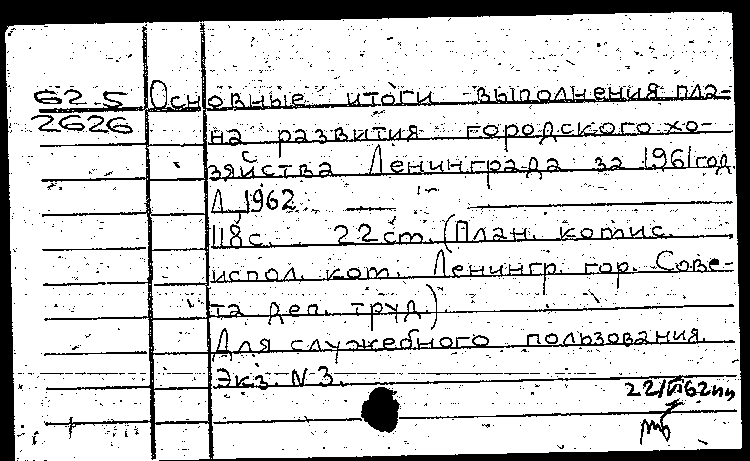 62.5 Основные итоги выполнения пла-
2626 на развития городского хо-
зяйства Ленинграда за 1961 год
Л., 1962
118с. 22 cm. (План. комис.
испол. ком. Ленингр. гор. Сове-
та деп. труд.)
Для служебного пользования.
Экз. N3.